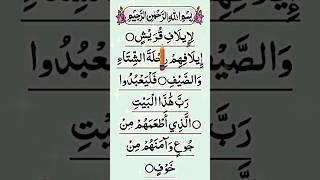 بِسْمِ اللهِ الرَّحْمٰنِ الرَّحِيْمِ
لِإِيلَافِ قُرَيْشٍ ○
إِيلَافِهِمْ رِحْلَةَ الشِّتَاءِ
وَالصَّيْفِ ○ فَلْيَعْبُدُوا
رَبَّ هَٰذَا الْبَيْتِ
○ الَّذِي أَطْعَمَهُمْ مِنْ
جُوعٍ وَآمَنَهُمْ مِنْ
خَوْفٍ ○